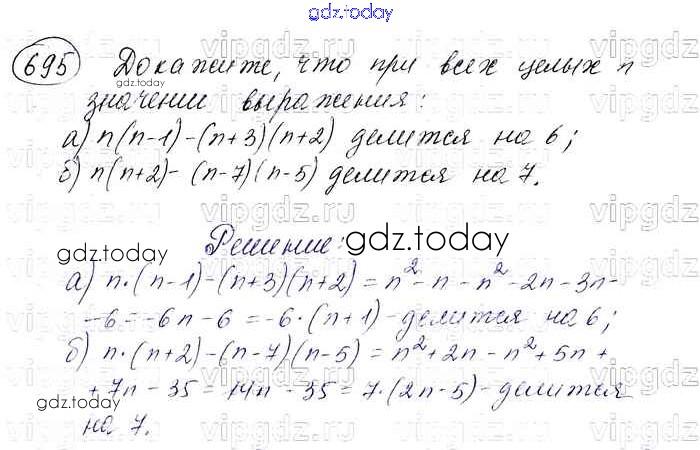 gdz.today
695 Докажите, что при всех целых n
значении выражения:
а) n(n-1)-(n+3)(n+2) делится на 6;
б) n(n+2)-(n-7)(n-5) делится на 7.
gdz.today
Решение: gdz.today
а) n·(n-1)-(n+3)(n+2) = n²-n-n²-2n-3n-
-6=-6n-6 =-6·(n+1)-делится на 6;
б) n·(n+2)-(n-7)(n-5) = n²+2n-n²+5n+
+7n-35=14n-35=7·(2n-5)-делится
gdz.today
на 7.